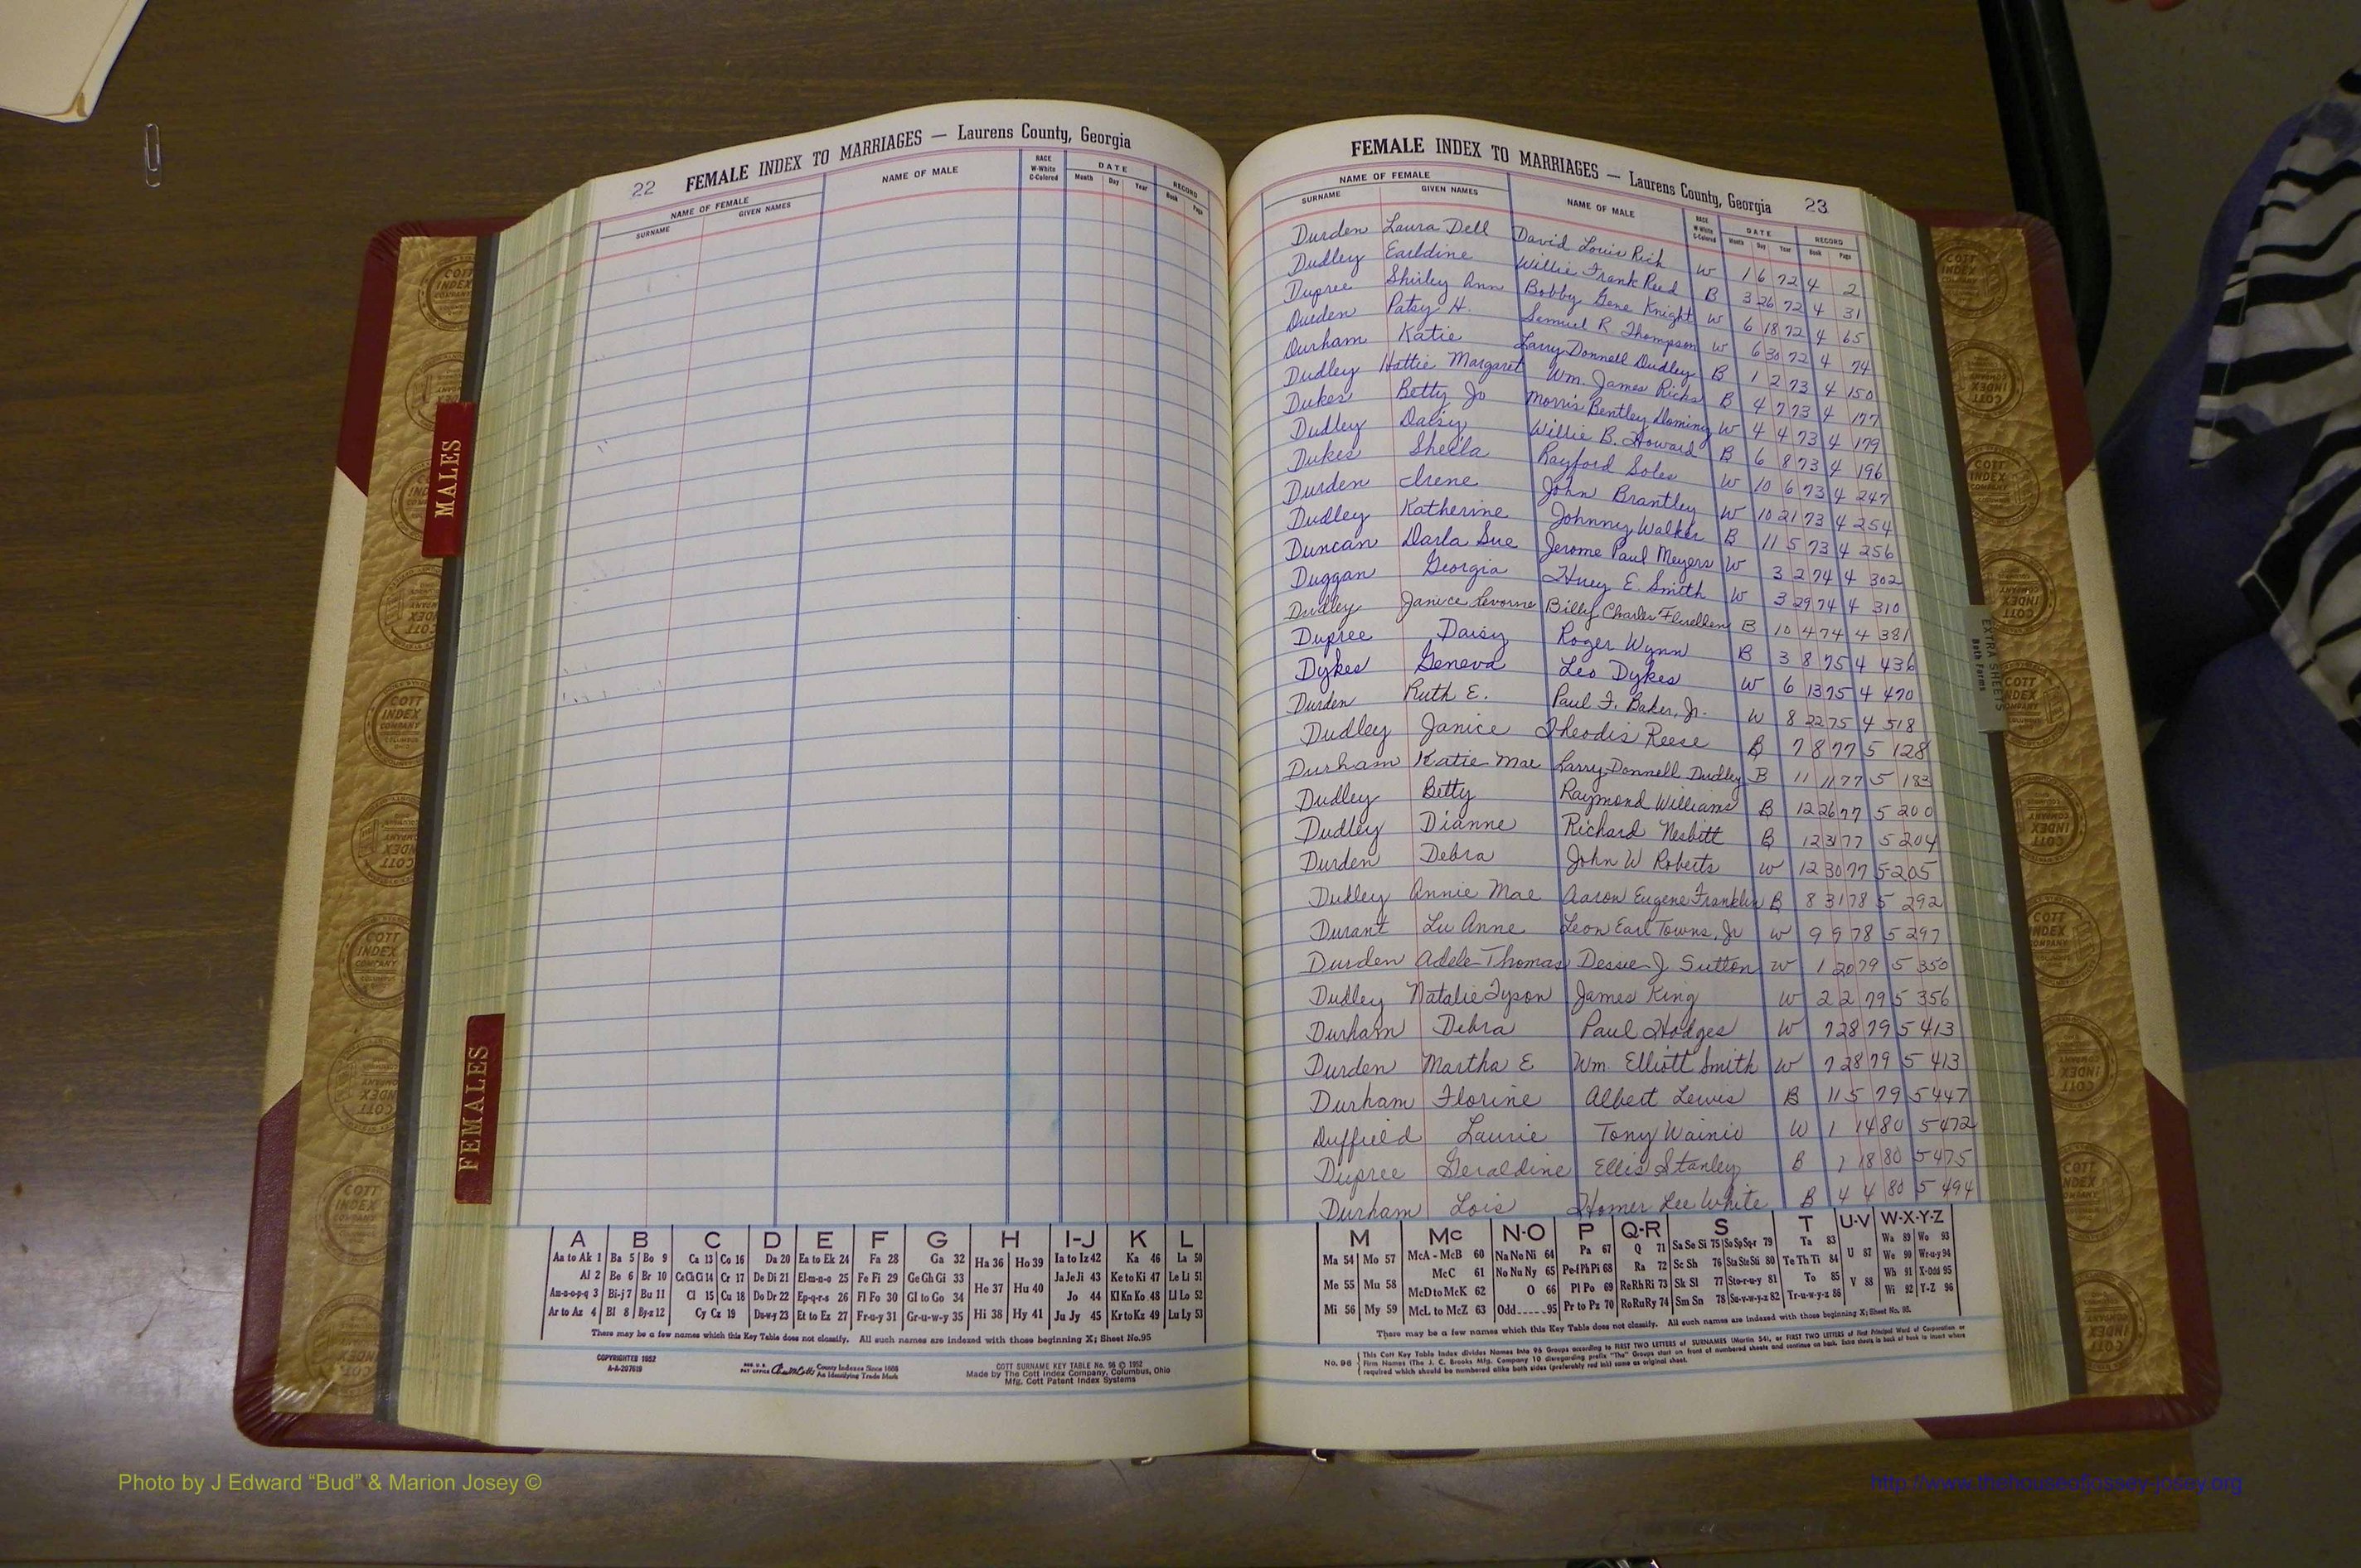 22 FEMALE INDEX TO MARRIAGES — Laurens County, Georgia
NAME OF FEMALE NAME OF MALE RACE W-White C-Colored DATE RECORD
SURNAME GIVEN NAMES Month Day Year Book Page
FEMALE INDEX TO MARRIAGES — Laurens County, Georgia 23
NAME OF FEMALE NAME OF MALE RACE W-White C-Colored DATE RECORD
SURNAME GIVEN NAMES Month Day Year Book Page
Durden Laura Dell David Louis Rich W 1 6 72 4 2
Dudley Earldine Willie Frank Reed B 3 26 72 4 31
Dupree Shirley Ann Bobby Gene Knight W 6 18 72 4 65
Durden Patsy H. Samuel R. Thompson W 6 30 72 4 74
Durham Katie Larry Donnell Dudley B 1 2 73 4 150
Dudley Hattie Margaret Wm. James Ricks B 4 7 73 4 177
Dukes Betty Jo Morris Bentley W 4 4 73 4 179
Dudley Daisy Willie B. Howard B 6 8 73 4 196
Dukes Sheila Rayford Soles W 10 6 73 4 247
Durden Irene John Brantley W 10 21 73 4 254
Dudley Katherine Johnny Walker B 11 5 73 4 256
Duncan Darla Sue Jerome Paul Meyers W 3 2 74 4 302
Duggan Georgia Huey E. Smith W 3 29 74 4 310
Dudley Janice Billy Charles B 10 4 74 4 381
Dupree Daisy Roger Wynn B 3 8 75 4 436
Dykes Geneva Leo Dykes W 6 13 75 4 470
Durden Ruth E. Paul F. Baker, Jr. W 8 22 75 4 518
Dudley Janice Theodis Reese B 7 8 77 5 128
Durham Katie Mae Larry Donnell Dudley B 11 11 77 5 183
Dudley Betty Raymond Williams B 12 26 77 5 200
Dudley Dianne Richard Nesbitt B 12 31 77 5 204
Durden Debra John W Roberts W 12 30 77 5 205
Dudley Annie Mae Aaron Eugene Franklin B 8 31 78 5 292
Durant Lu Anne Leon Earl Towns, Jr W 9 9 78 5 297
Durden Adele Thomas Dessie J. Sutton W 1 20 79 5 350
Dudley Natalie Tyson James King W 2 2 79 5 356
Durham Debra Paul Hodges W 7 28 79 5 413
Durden Martha E Wm. Elliott Smith W 7 28 79 5 413
Durham Florine Albert Lewis B 11 5 79 5 447
Duffield Laurie Tony Wainio W 1 14 80 5 472
Dupree Geraldine Ellis Stanley B 1 18 80 5 475
Durham Lois Homer Lee White B 4 4 80 5 494
MALES
FEMALES
EXTRA SHEETS
Both Forms
COTT INDEX COMPANY
A B C D E F G H I-J K L
Aa to Ak 1 Ba 5 Bo 9 Ca 13 Co 16 Da 20 Ea to Ek 24 Fa 28 Ga 32 Ha 36 Ho 39 Ia to Iz 42 Ka 46 La 50
Al 2 Be 6 Br 10 Ce Ch Ci 14 Cr 17 De Di 21 El-m-n-o 25 Fe Fi 29 Ge Gh Gi 33 He 37 Hu 40 Ja Je Ji 43 Ke to Ki 47 Le Li 51
Am-n-o-p-q 3 Bi-j 7 Bu 11 Cl 15 Cu 18 Do Dr 22 Ep-q-r-s 26 Fl Fo 30 Gl to Go 34 Jo 44 Kl Kn Ko 48 Ll Lo 52
Ar to Az 4 Bl 8 By-z 12 Cy Cz 19 Du-w-y 23 Et to Ez 27 Fr-u-y 31 Gr-u-w-y 35 Hi 38 Hy 41 Ju Jy 45 Kr to Kz 49 Lu Ly 53
There may be a few names which this Key Table does not classify. All such names are indexed with those beginning X; Sheet No.95
COPYRIGHTED 1952
A-A-207619
REG. U.S. PAT OFFICE County Indexes Since 1888
An Identifying Trade Mark
COTT SURNAME KEY TABLE No. 96 © 1952
Made by The Cott Index Company, Columbus, Ohio
Mfg. Cott Patent Index Systems
M Mc N-O P Q-R S T U-V W-X-Y-Z
Ma 54 Mo 57 McA - McB 60 Na Ne Ni 64 Pa 67 Q 71 Sa Se Si 75 So Sp Sq-r 79 Ta 83 U 87 Wa 89 Wo 93
Me 55 Mu 58 McC 61 No Nu Ny 65 Pe-f Ph Pi 68 Ra 72 Sc Sh 76 Sta Ste Sti 80 Te Th Ti 84 We 90 Wr-u-y 94
McD to McK 62 O 66 Pl Po 69 Re Rh Ri 73 Sk Sl 77 Sto-r-u-y 81 To 85 V 88 Wh 91 X-Odd 95
Mi 56 My 59 McL to McZ 63 Odd 95 Pr to Pz 70 Ro Ru Ry 74 Sm Sn 78 Su-v-w-y-z 82 Tr-u-w-y-z 86 Wi 92 Y-Z 96
There may be a few names which this Key Table does not classify. All such names are indexed with those beginning X; Sheet No. 95.
No. 96 This Cott Key Table Index divides Names into 96 Groups according to FIRST TWO LETTERS of SURNAMES (Martin 54), or FIRST TWO LETTERS of First Principal Word of Corporation or
Firm Names (The J. C. Brooks Mfg. Company 10 disregarding prefix "The" Groups start on front of numbered sheets and continue on back. Extra sheets in back of book to insert where
required which should be numbered alike both sides (preferably red ink) same as original sheet.
Photo by J Edward “Bud” & Marion Josey ©
http://www.thehouseofjossey-josey.org